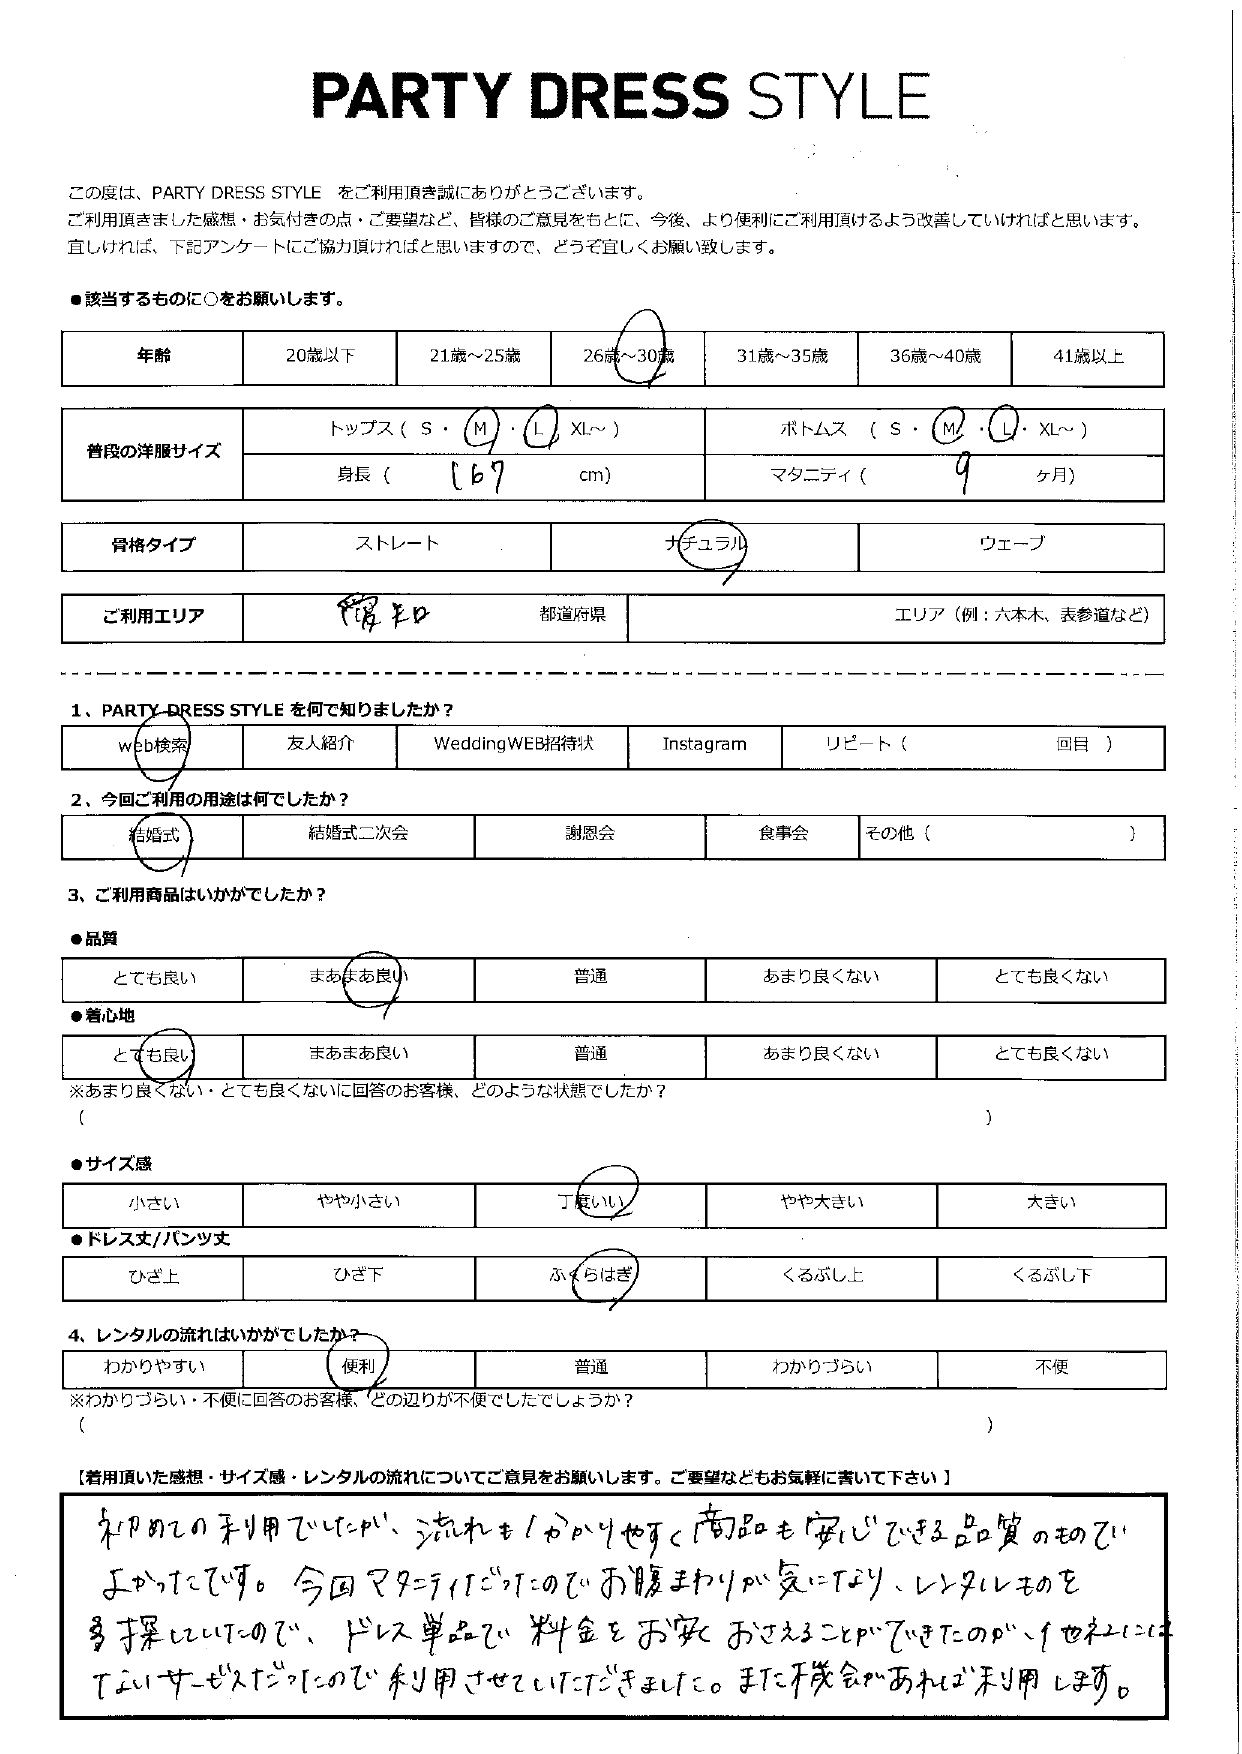 PARTY DRESS STYLE
この度は、PARTY DRESS STYLE をご利用頂き誠にありがとうございます。
ご利用頂きました感想・お気付きの点・ご要望など、皆様のご意見をもとに、今後、より便利にご利用頂けるよう改善していければと思います。
宜しければ、下記アンケートにご協力頂ければと思いますので、どうぞ宜しくお願い致します。
●該当するものに○をお願いします。
年齢 20歳以下 21歳～25歳 26歳～30歳 31歳～35歳 36歳～40歳 41歳以上
普段の洋服サイズ トップス ( S ・ M ・ L ・ XL～ ) ボトムス ( S ・ M ・ L ・ XL～ )
身長 ( 167 cm) マタニティ ( 9 ヶ月)
骨格タイプ ストレート ナチュラル ウェーブ
ご利用エリア 愛知 都道府県 エリア（例：六本木、表参道など）
1、PARTY DRESS STYLE を何で知りましたか？
web検索 友人紹介 WeddingWEB招待状 Instagram リピート ( 回目 )
2、今回ご利用の用途は何でしたか？
結婚式 結婚式二次会 謝恩会 食事会 その他 ( )
3、ご利用商品はいかがでしたか？
●品質
とても良い まあまあ良い 普通 あまり良くない とても良くない
●着心地
とても良い まあまあ良い 普通 あまり良くない とても良くない
※あまり良くない・とても良くないに回答のお客様、どのような状態でしたか？
( )
●サイズ感
小さい やや小さい 丁度いい やや大きい 大きい
●ドレス丈/パンツ丈
ひざ上 ひざ下 ふくらはぎ くるぶし上 くるぶし下
4、レンタルの流れはいかがでしたか？
わかりやすい 便利 普通 わかりづらい 不便
※わかりづらい・不便に回答のお客様、どの辺りが不便でしたでしょうか？
( )
【着用頂いた感想・サイズ感・レンタルの流れについてご意見をお願いします。ご要望などもお気軽に書いて下さい 】
初めての利用でしたが、流れも分かりやすく商品も安心できる品質のもので
よかったです。今回マタニティだったのでお腹まわりが気になり、レンタルものを
探していたので、ドレス単品で料金をお安くおさえることができたのが、他社には
ないサービスだったので利用させていただきました。また機会があれば利用します。